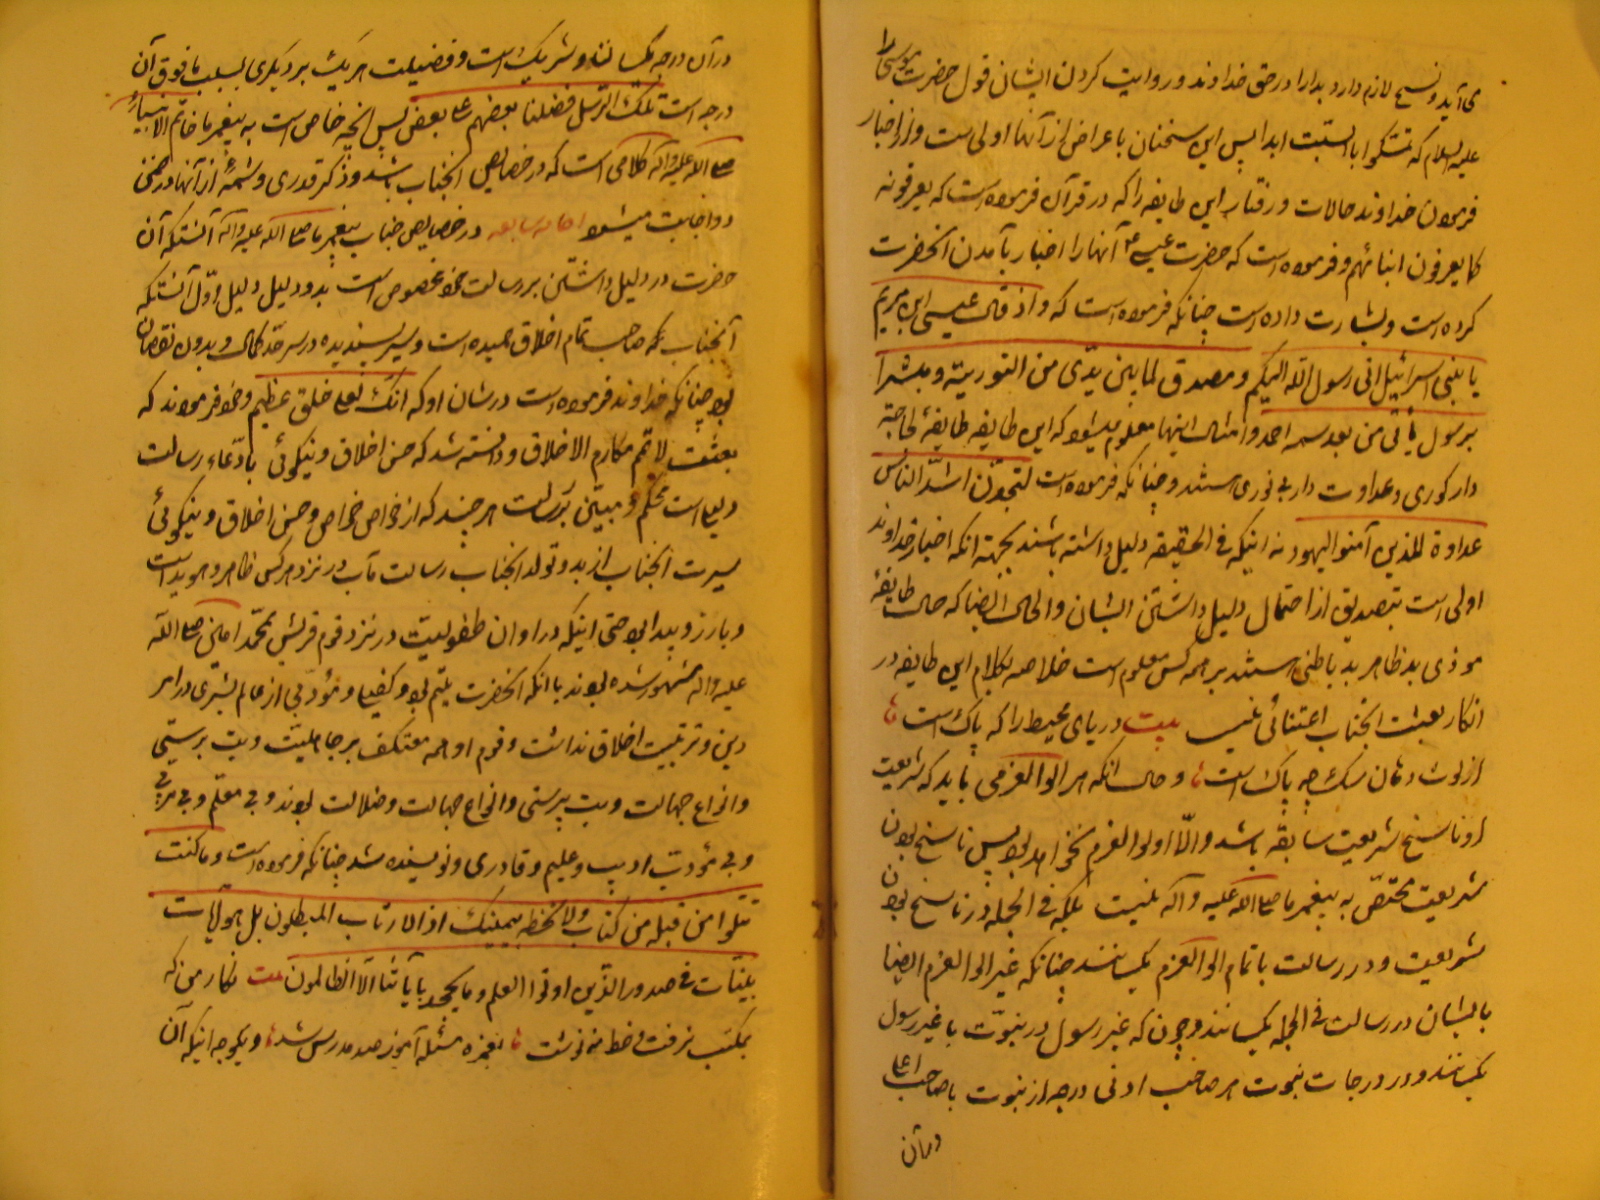 می‌آید و نسخ لازم دارد بدا را در حق خداوند و روایت کردن ایشان قول حضرت موسی را
علیه السلام که تمسکوا بالسبت ابدا پس این سخنان با عراض از آنها اولی است و از اخبار
فرمودن خداوند حالات و رفتار این طایفه را که در قرآن فرموده است که یعرفونه
کما یعرفون ابنائهم و فرموده است که حضرت عیسی ع آنها را اخبار بآمدن آنحضرت
کرده است و بشارت داده است چنانکه فرموده است که و اذ قال عیسی ابن مریم
یا بنی اسرائیل انی رسول الله الیکم و مصدق لما بین یدی من التوریة و مبشرا
برسول یأتی من بعد اسمه احمد و امثال اینها معلوم میشود که این طایفه طایفهٔ لجاجة
دار کوری و عداوت دار بی نوری هستند و چنانکه فرموده است لتجدن اشد الناس
عداوة للذین آمنوا الیهود نه اینکه فی الحقیقه دلیل داشته باشند بجهة انکه اخبار خداوند
اولی است بتصدیق از احتمال دلیل داشتن ایشان و الحال ایضا که حال طایفهٔ
موذی بد ظاهر بد باطنی هستند بر همه کس معلوم است خلاصه بکلام این طایفه در
انکار بعثت انجناب اعتنائی نیست بیت دریای محیط را که پاک است
از لوث دهان سک چه باک است و حال انکه هر الو العزمی باید که شریعت
او ناسخ شریعت سابقه باشد و الّا اولو العزم نخواهد بود پس ناسخ بودن
شریعت مختص به پیغمبر ما صلی الله علیه و آله نیست بلکه فی الجمله در ناسخ بودن
شریعت و در رسالت با تمام الو العزم یکسانند چنانکه غیر الو العزم ایضا
بایشان در رسالت فی الجمله یکسانند و چون که غیر رسول در نبوت با غیر رسول
یکسانند و در درجات نبوت هر صاحب ادنی درجه از نبوت با صاحب اعلی
در آن
در آن درجه یکسانند و شریک است و فضیلت هر یک بر دیگری بسبب ما فوق آن
درجه است تلک الرسل فضلنا بعضهم علی بعض پس انچه خاص است به پیغمبر ما خاتم الانبیاء
صلی الله علیه و آله کلامی است که در خصایص انجناب باشد و ذکر قدری و شمهٔ از آنها در ضمن
در خصایص جناب پیغمبر ما صلی الله علیه و آله آنستکه آن
حضرت در دلیل داشتن بر رسالت خود مخصوص است بدو دلیل دلیل اول آنستکه
آنجناب که صاحب تمام اخلاق حمیده است و سیر پسندیده در سر حد کمال و بدون نقصان
بود چنانکه خداوند فرموده است در شان او که انک لعلی خلق عظیم و خود فرمودند که
بعثت لاتمم مکارم الاخلاق و دانسته شد که حسن اخلاق و نیکوئی با ادعاء رسالت
دلیل است محکم و مبین بر رسالت هر چند که از خواص خواص و حسن اخلاق و نیکوئی
سیرت انجناب از بدو تولد انجناب رسالت مآب در نزد هر کس ظاهر و هویداست
و بارز و پیدا بود حتی اینکه در اوان طفولیت در نزد قوم قریش بمحمد امین صلی الله
علیه و اله مشهور شده بودند با انکه آنحضرت یتیم بود و کفیل و مؤدبی از عالم بشری در امر
دین و تربیت اخلاق نداشت و قوم او همه معتکف بر جاهلیت و بت پرستی
و انواع جهالت و بت پرستی و انواع جهالت و ضلالت بودند و بی معلم و بی مربی
و بی مؤدب ادیب و علیم و قادری و نویسنده شد چنانکه فرموده است و ما کنت
تتلوا من قبله من کتاب و لا تخطه بیمینک اذا لارتاب المبطلون بل هو آیات
بینات فی صدور الذین اوتوا العلم و ما یجحد بآیاتنا الا الظالمون بیت نکار من که
بمکتب نرفت و خط ننوشت بغمزه مسئله آموز صد مدرس شد و بکوجه اینکه آن